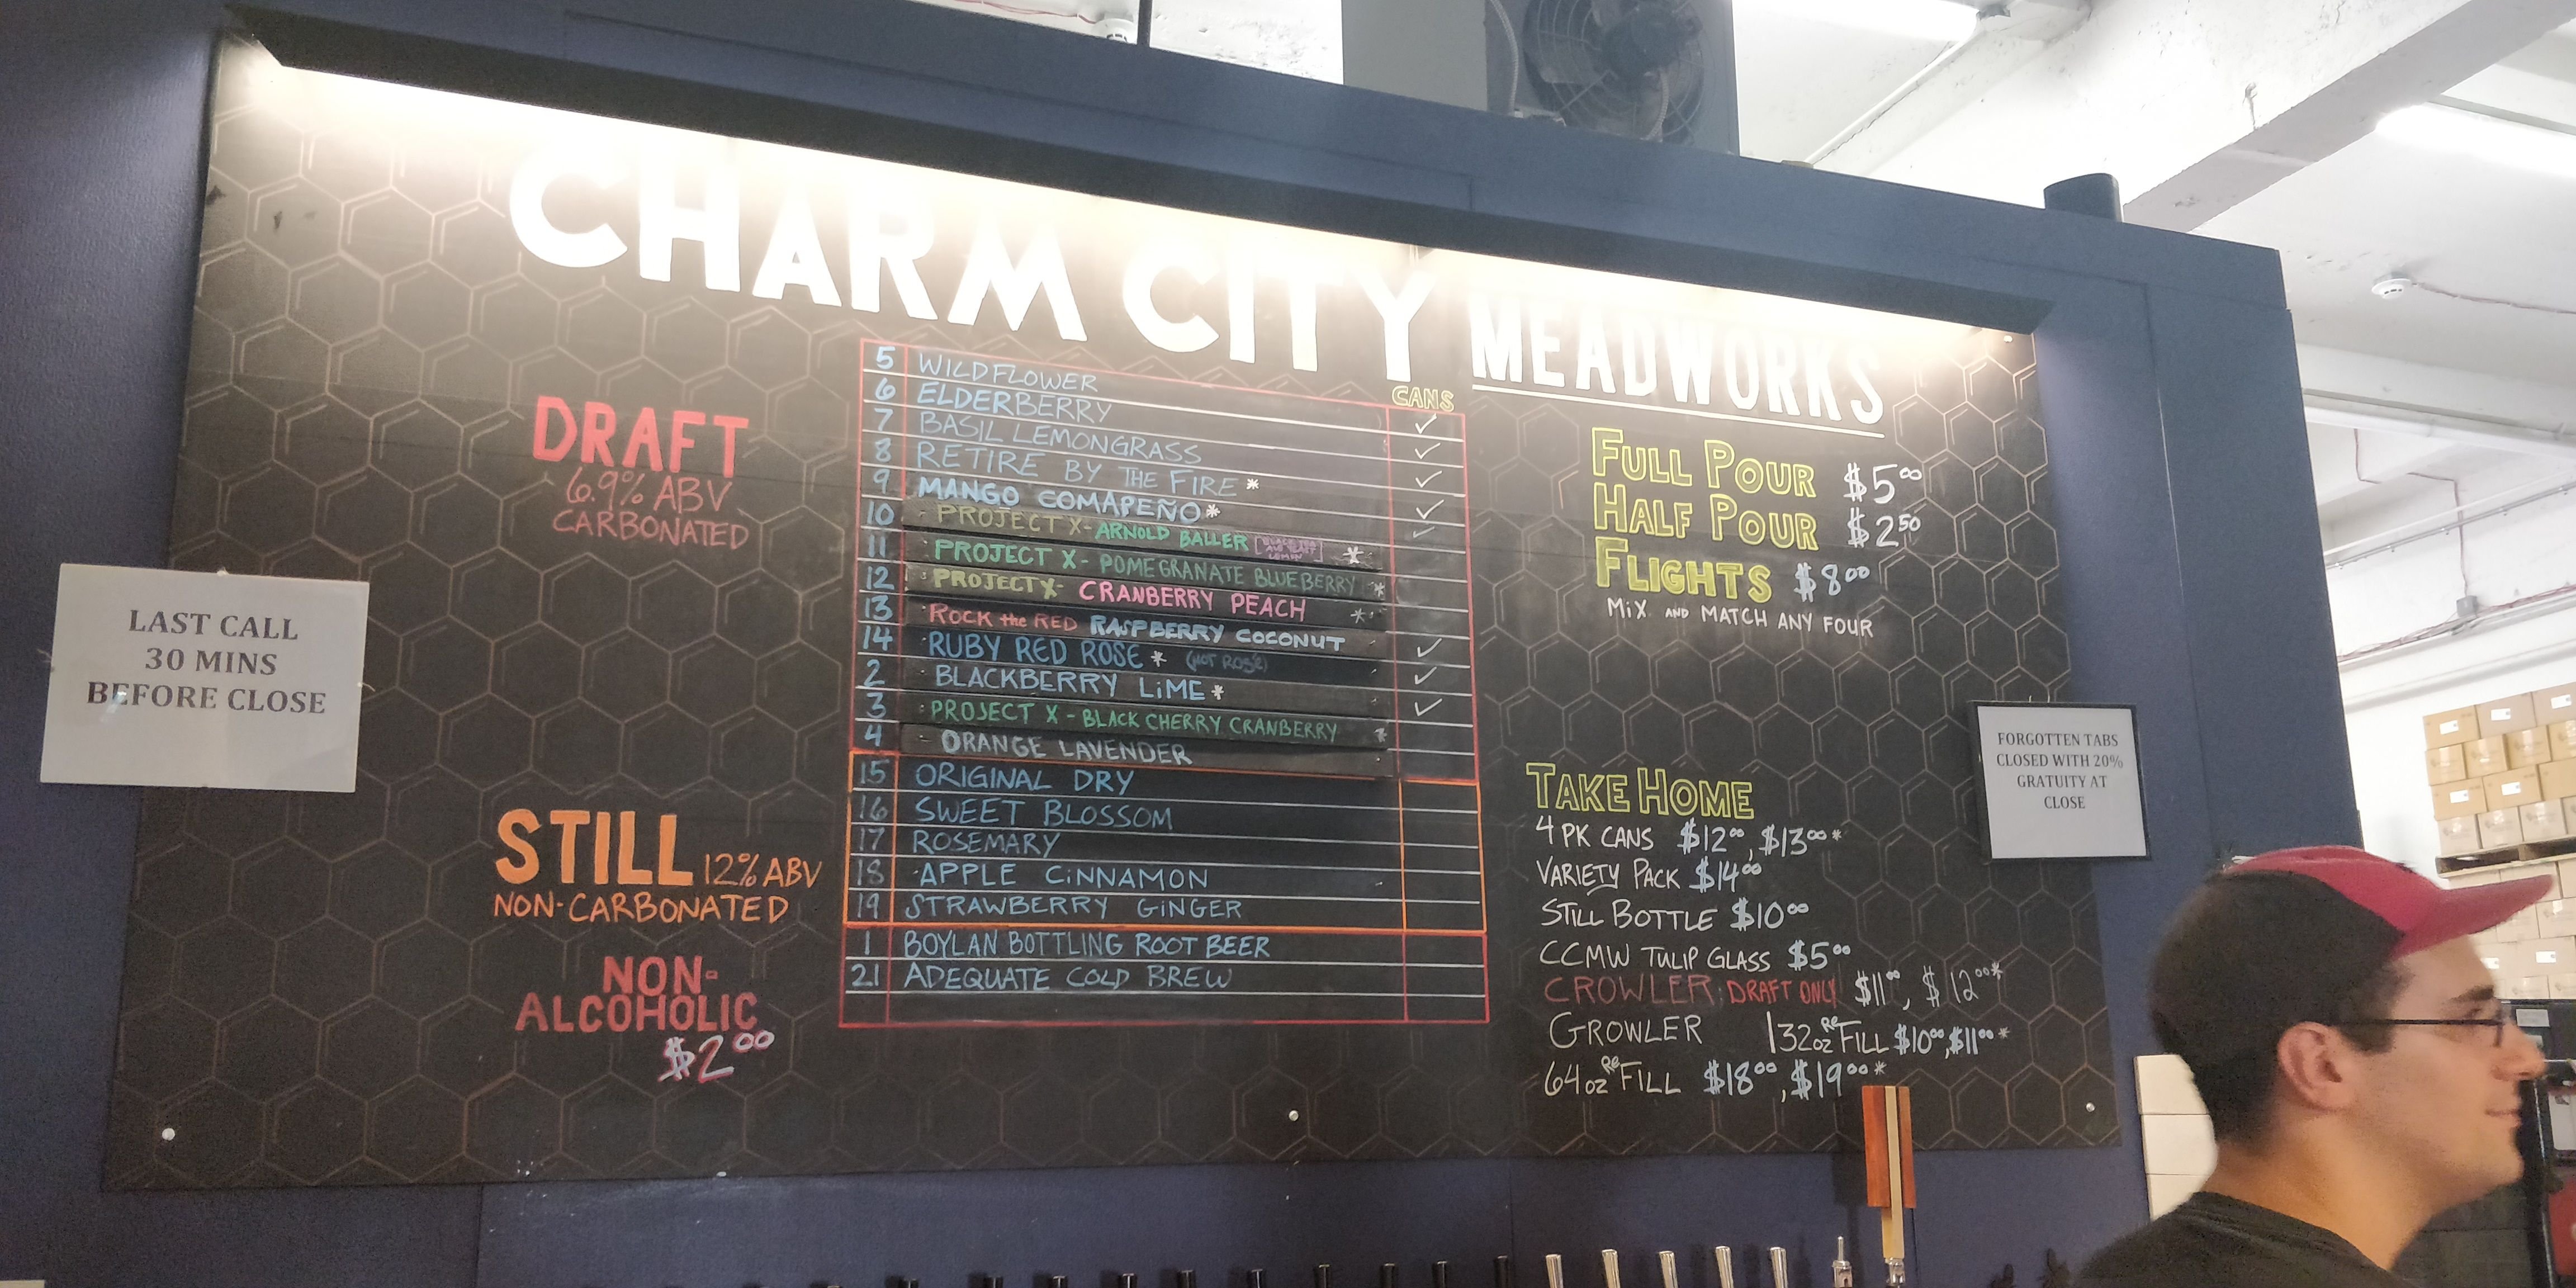 CHARM CITY MEADWORKS
LAST CALL
30 MINS
BEFORE CLOSE
DRAFT
6.9% ABV
CARBONATED
STILL 12% ABV
NON-CARBONATED
NON-
ALCOHOLIC
$2.00
CANS
5 WILDFLOWER ✓
6 ELDERBERRY ✓
7 BASIL LEMONGRASS ✓
8 RETIRE BY THE FIRE * ✓
9 MANGO COMAPEÑO * ✓
10 PROJECT X - ARNOLD BALLER *
11 PROJECT X - POMEGRANATE BLUEBERRY *
12 PROJECT X - CRANBERRY PEACH *
13 ROCK the RED RASPBERRY COCONUT ✓
14 RUBY RED ROSE * (NOT ROSÉ) ✓
2 BLACKBERRY LiME * ✓
3 PROJECT X - BLACK CHERRY CRANBERRY *
4 ORANGE LAVENDER
15 ORIGINAL DRY
16 SWEET BLOSSOM
17 ROSEMARY
18 APPLE CiNNAMON
19 STRAWBERRY GiNGER
1 BOYLAN BOTTLING ROOT BEER
21 ADEQUATE COLD BREW
FULL POUR $5.00
HALF POUR $2.50
FLIGHTS $8.00
MiX AND MATCH ANY FOUR
TAKE HOME
4 PK CANS $12.00, $13.00*
VARIETY PACK $14.00
STILL BOTTLE $10.00
CCMW TULIP GLASS $5.00
CROWLER: DRAFT ONLY $11.00, $12.00*
GROWLER | 32oz REFILL $10.00, $11.00*
64oz REFILL $18.00, $19.00*
FORGOTTEN TABS
CLOSED WITH 20%
GRATUITY AT
CLOSE